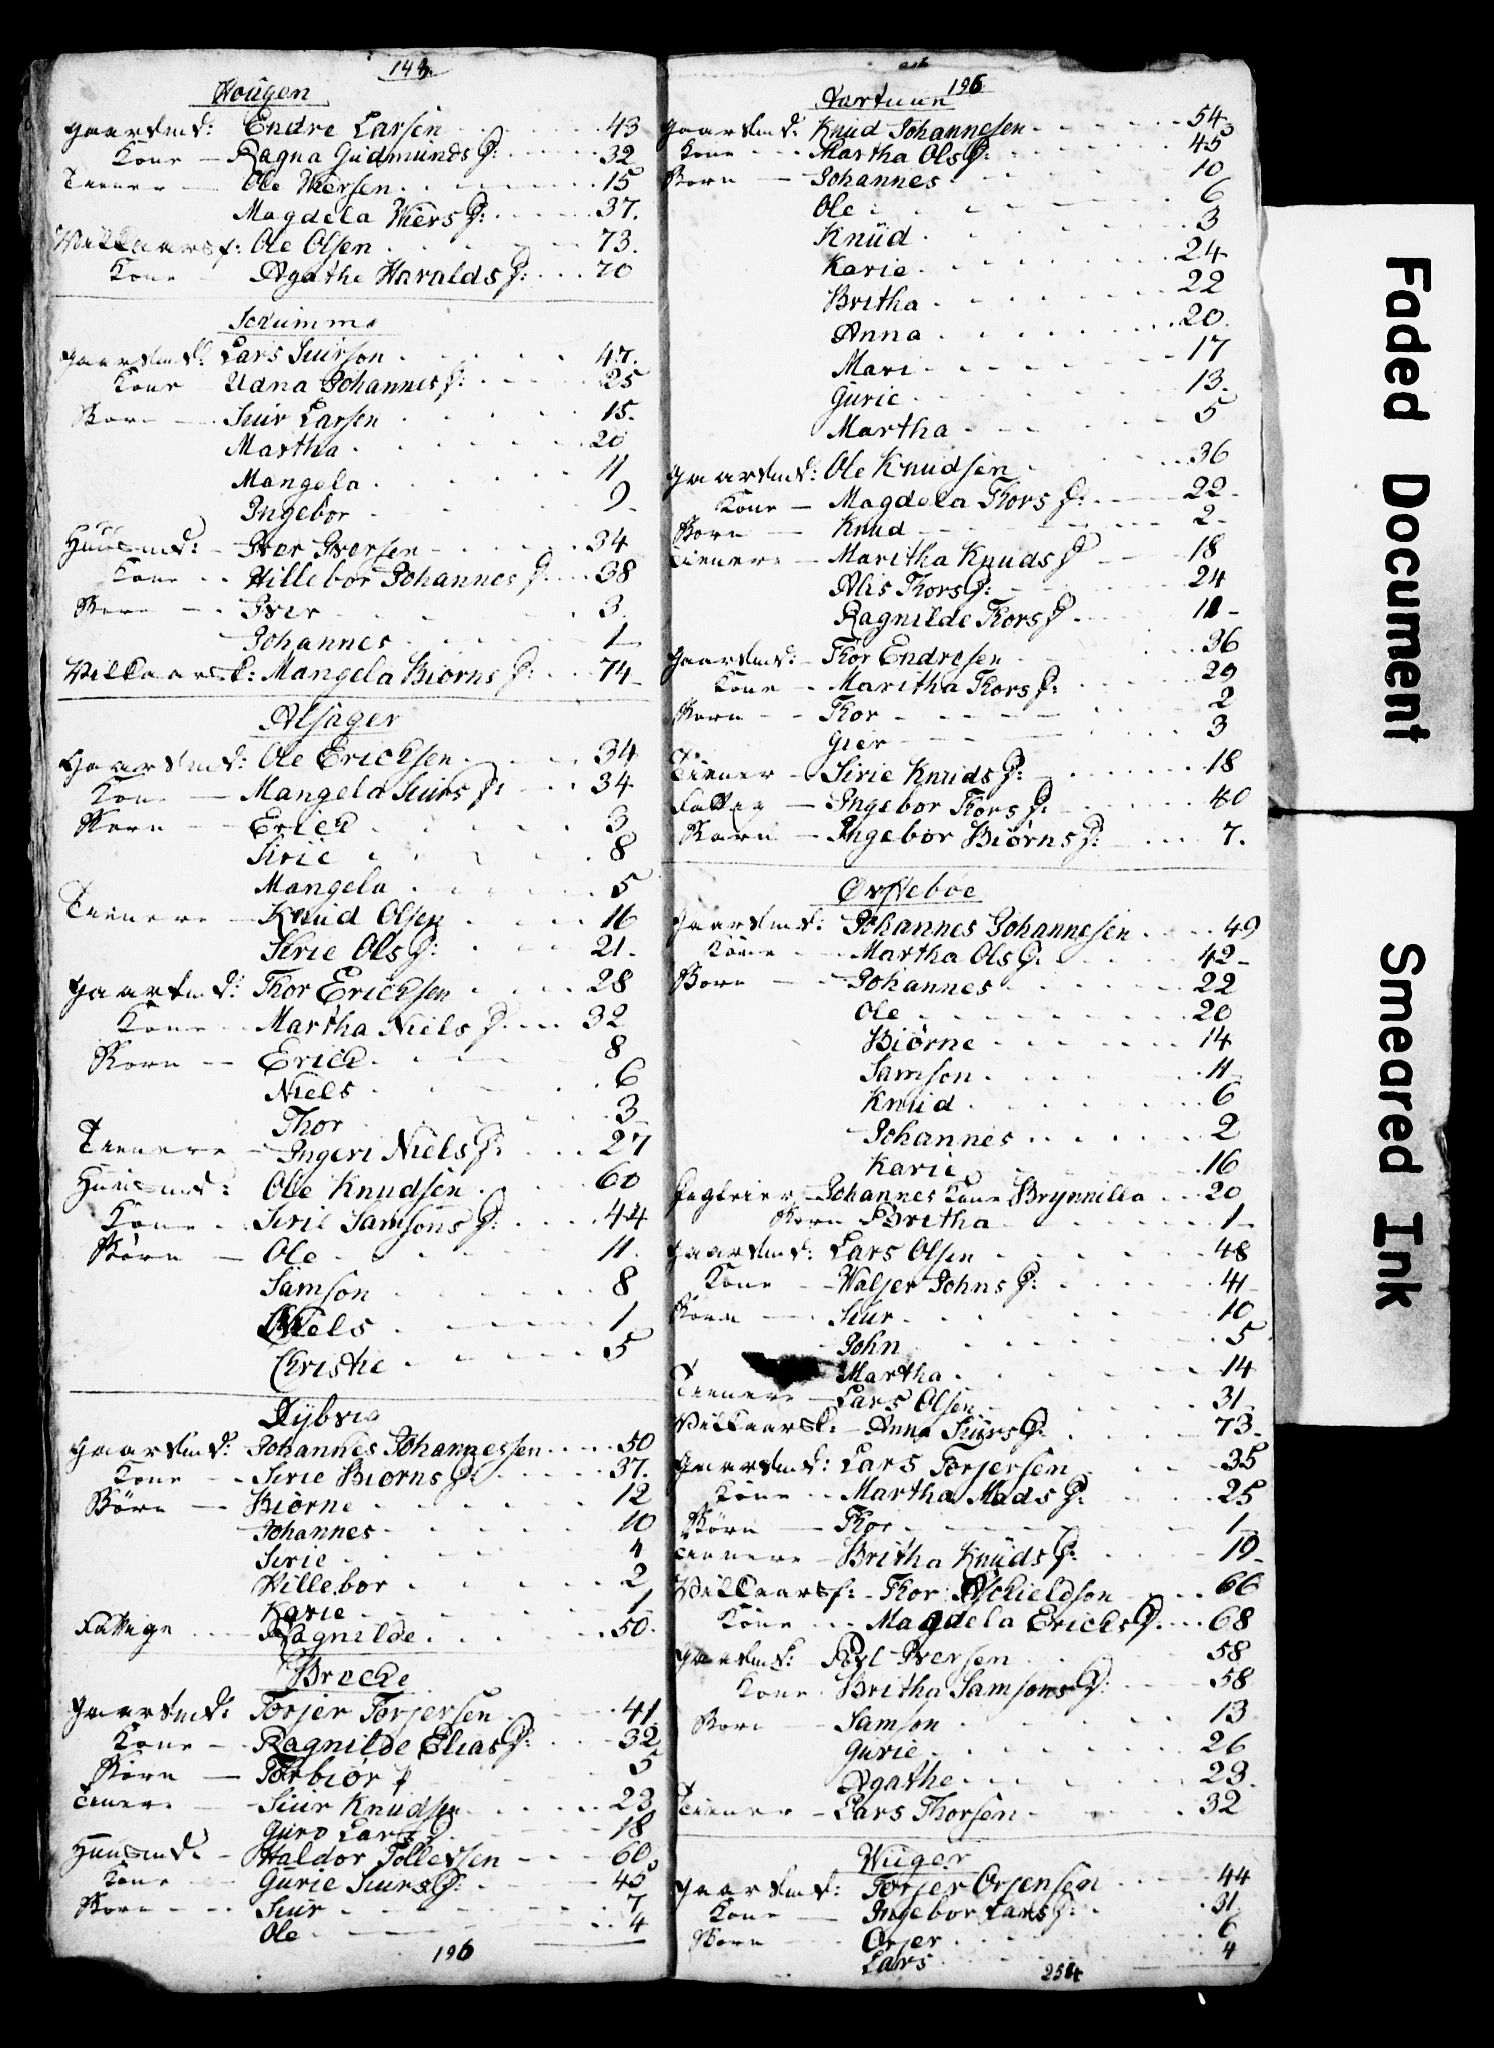 144.
Hougen
gaardmd: Endre Larsen 43
Kone Ragna Gudmunds D: 32
Tiener Ole Wiersen 15
Magdela Wiers D: 37.
Vilkaarsf: Ole Olsen 73.
Kone Agathe Haralds D: 70
Scrumme
gaardmd: Lars Siurson 47.
Kone Udna Johannes D: 25
Børn Siur Larsen 15.
Martha 20
Mangela 11
Ingebor 9
Huusmd: Iver Iversen 34
Kone Hillebor Johannes D. 38
Børn Iver 3.
Johannes 1
Vilkaarsk: Mangela Biorns D: 74
Alsager
Gaardmd: Ole Ericksen 34
Kone Mangela Siurs D: 34
Børn Erick 3
Sirie 8
Mangela 5
Tienere Knud Olsen 16
Sirie Ols D: 21.
gaardmd: Thor Ericksen 28
Kone Martha Niels D. 32
Børn Erick 8
Niels 6
Thor 3
Tienere Ingeri Niels D: 27
Huusmd: Ole Knudsen 60
Kone Sirie Samsons D: 44
Børn Ole 11.
Samson 8
Niels 1
Christie 5
Dybvig
gaardmd: Johannes Johannessen 50
Kone Sirie Biorns D: 37.
Børn Biørne 12
Johannes 10
Sirie 4
Hillebor 2
Karie 1
Fattige Ragnilde 50.
Brecke
gaardmd: Torjer Torjersen 41
Kone Ragnilde Elias D: 32
Børn Torbiør 5
Tiener Siur Knudsen 23
Guro Lars D 18
Huusmd. Haldor Tollevsen 60
Kone Gurie Siurs D: 45
Børn Siur 7
Ole 4
196
196
Aartuun
gaardmd: Knud Johannesen 54
Kone Martha Ols D: 45
Børn Johannes 10
Ole 6
Knud 3
Karie 24
Britha 22
Anna 20.
Mari 17
Gurie 13.
Martha 5
gaardmd: Ole Knudsen 36
Kone Magdela Thors D: 22
Børn Knud 2
Tienere Maritha Knuds D 18
Alis Thors D: 24
Ragnilde Thors D 11
gaardmd: Thor Endresen 36
Kone Maritha Thors D: 29
Børn Thor 2
Gier 3
Tiener Sirie Knuds D: 18
Fattig Ingebor Thors D: 40
Barn Ingebor Biørns D: 7.
Ørstebøe
gaardmd: Johannes Johannesen 49
Kone Martha Ols D: 42
Børn Johannes 22
Ole 20
Biørne 14
Samson 11
Knud 6
Johannes 2
Karie 16
Johannes Kone Brynnilla 20
Børn Britha 1
gaardmd: Lars Olsen 48
Kone Waljer Johns D: 41
Børn Siur 10
John 5
Martha 14
Tienere Lars Olsen 31
Vilkaarsk. Anna Siurs D: 73.
Gaardmd: Lars Torjersen 35
Kone Martha Mads D: 25
Børn Thor 1
Tienere Britha Knuds D: 19
Vilkaarsf: Thor Askieldson 66
Kone Magdela Ericks D. 68
gaardmd: Povl Iversen 58
Kone Britha Samsons D: 58
Børn Samson 13
Gurie 26
Agathe 23.
Tiener Lars Thorsen 32
Wiiger
gaardmd: Torjer Orjensen 44
Kone Ingebor Lars D: 31
Børn Orjer 6
Lars 4
254
Faded Document
Smeared Ink